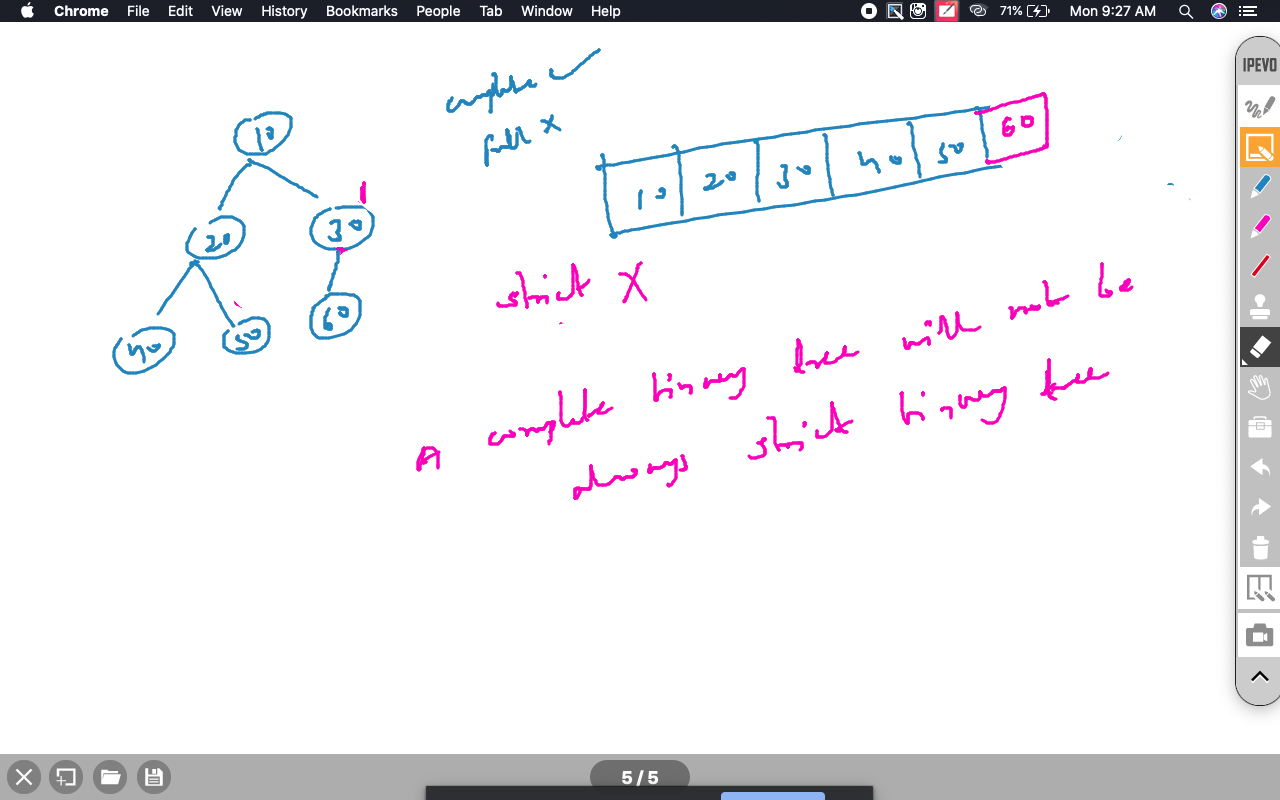 Chrome File Edit View History Bookmarks People Tab Window Help 71% Mon 9:27 AM
IPEVO
complete ✓
full X
10
20 30
40 50 60
1
10 20 30 40 50 60
strict X
A complete binary tree will not be
always strict binary tree
5 / 5